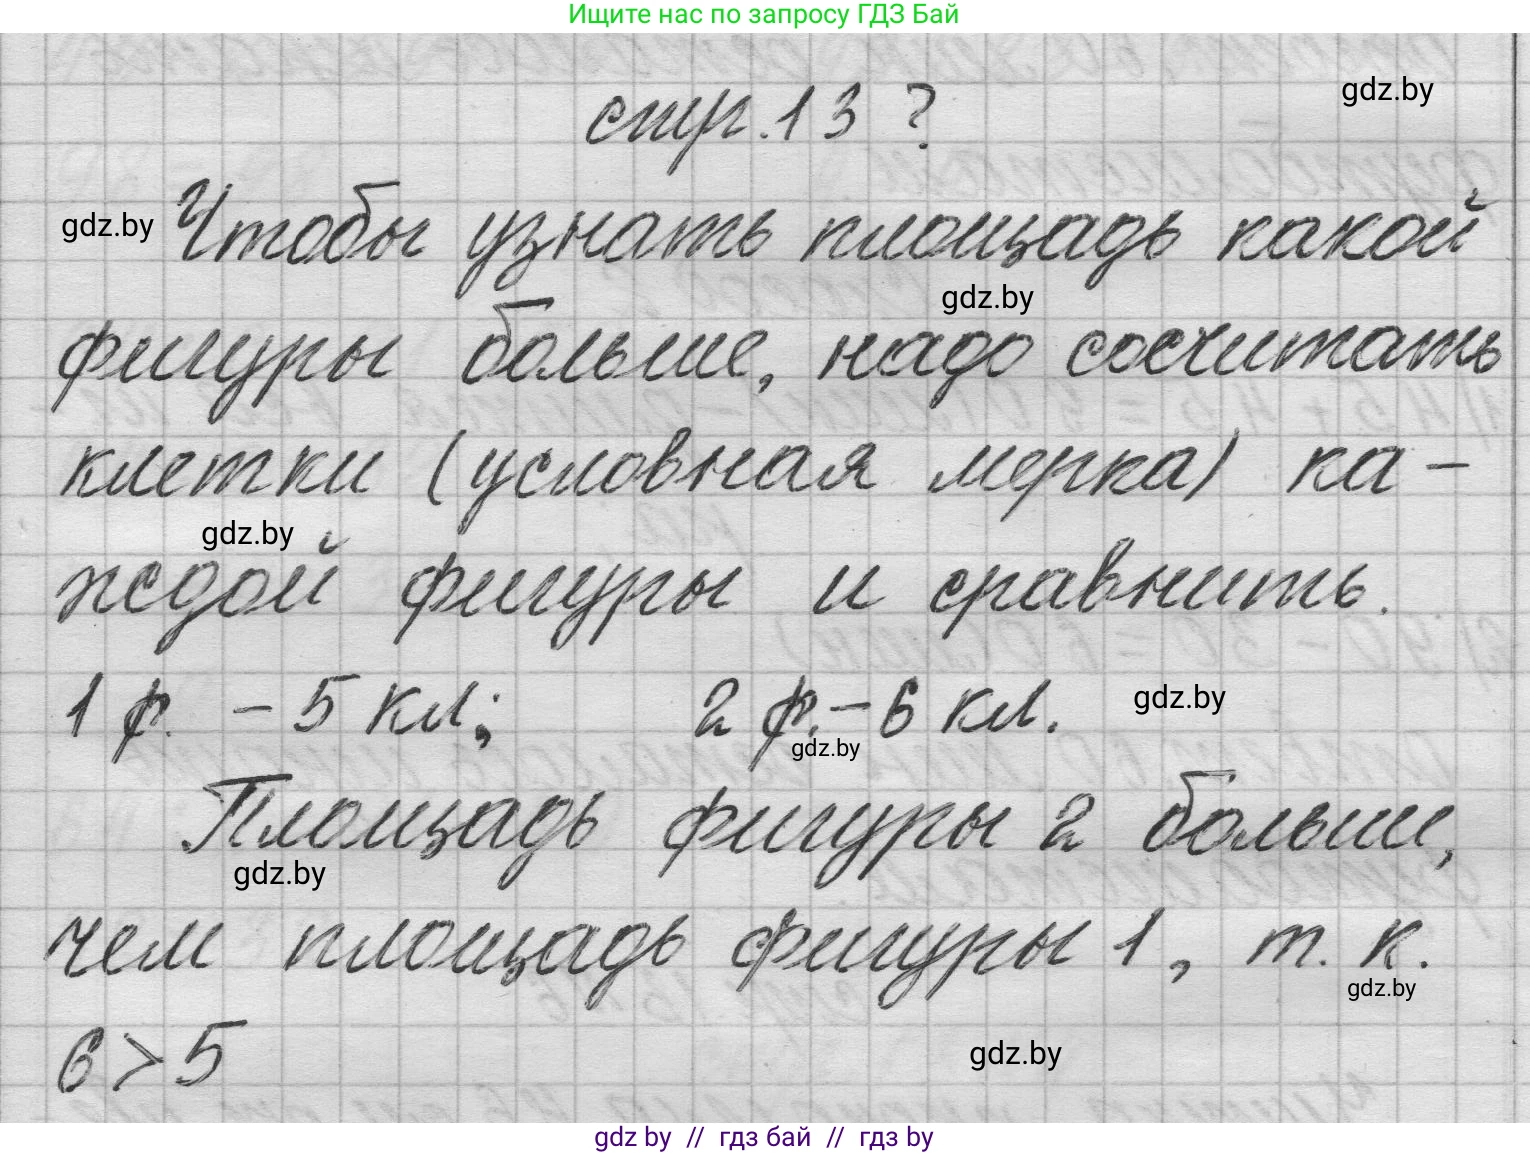 Ищите нас по запросу ГДЗ Бай
стр. 13 ?
gdz.by
Чтобы узнать площадь какой
gdz.by
gdz.by
фигуры больше, надо сосчитать
клетки (условная мерка) ка-
gdz.by
ждой фигуры и сравнить.
1 ф. - 5 кл; 2 ф. - 6 кл.
gdz.by
gdz.by
Площадь фигуры 2 больше,
gdz.by
чем площадь фигуры 1, т. к.
gdz.by
6 > 5
gdz.by
gdz by // гдз бай // гдз by